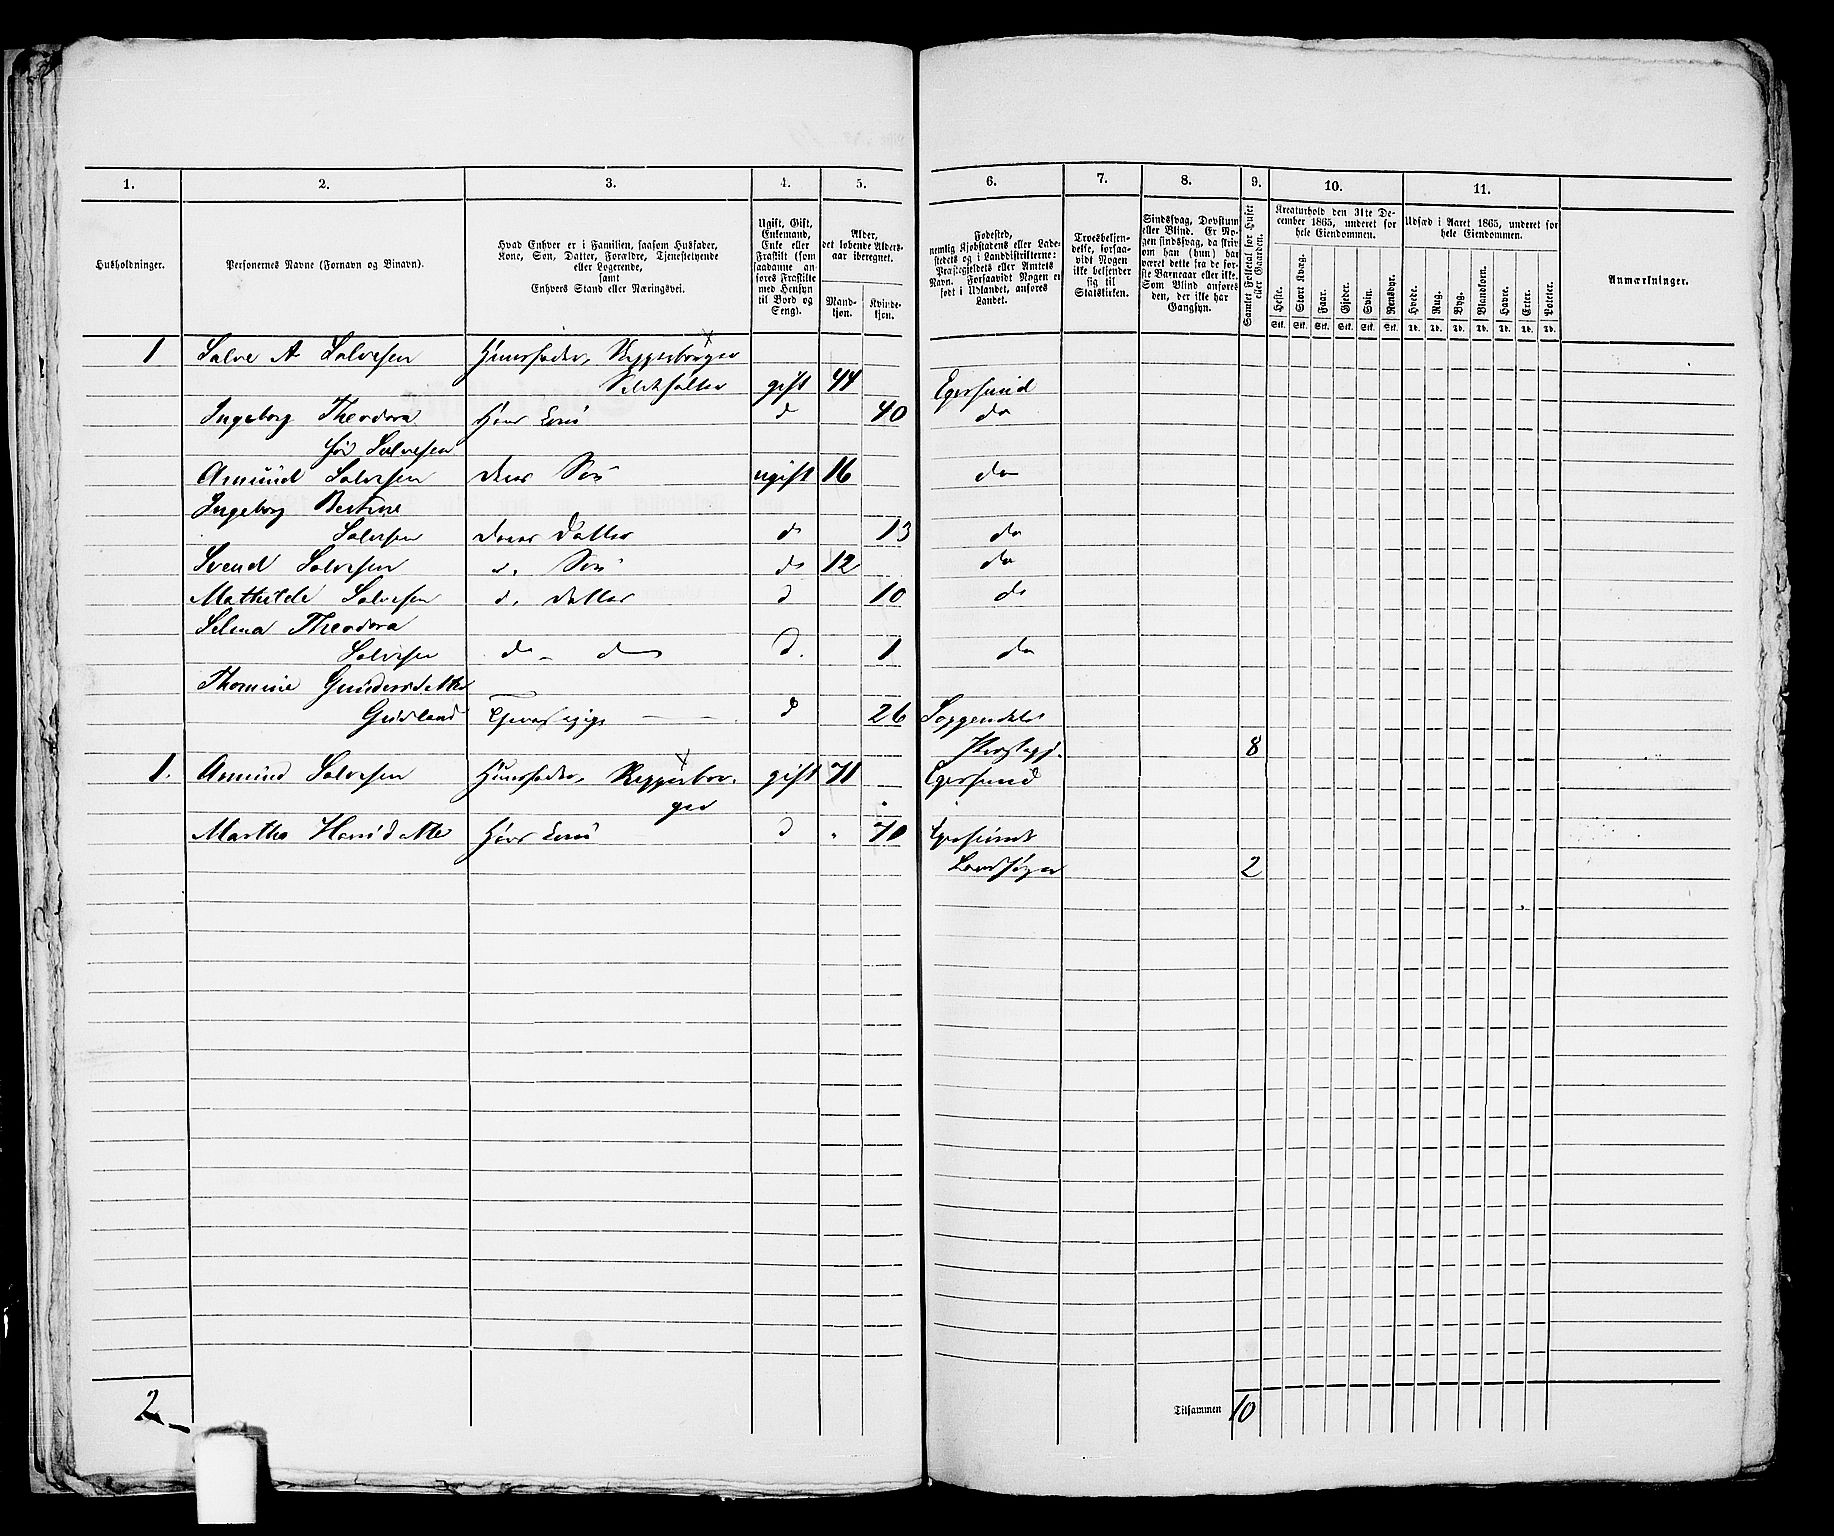 1. 2. 3. 4. 5. 6. 7. 8. 9. 10. 11.
Husholdninger.
Personernes Navne (Fornavn og Binavn).
Hvad Enhver er i Familien, saasom Husfader,
Kone, Søn, Datter, Forældre, Tjenestetyende
eller Logerende,
samt
Enhvers Stand eller Næringsvei.
Ugift, Gift,
Enkemand,
Enke eller
Fraskilt (som
saadanne an-
føres Fraskilte
med Hensyn
til Bord og
Seng).
Alder,
det løbende Alders-
aar iberegnet.
Mand-
kjøn.
Kvinde-
kjøn.
Fødested,
nemlig Kjøbstadens eller Lade-
stedets og i Landdistrikterne:
Præstegjeldets eller Amtets
Navn. Forsaavidt Nogen er
født i Udlandet, anføres
Landet.
Troesbekjen-
delse, forsaa-
vidt Nogen
ikke bekjender
sig til
Statskirken.
Sindssvag, Døvstum
eller Blind. Er No-
gen sindssvag, da skriv
om han (hun) har
været dette fra de før-
ste Barneaar eller ikke.
Som Blind anføres
den, der ikke har
Gangsyn.
Samlet Folketal for Huset
eller Gaarden.
Kreaturhold den 31te De-
cember 1865, underet for
hele Eiendommen.
Heste. Stort Kvæg. Faar. Gjeder. Svin. Rensdyr.
Stk. Stk. Stk. Stk. Stk. Stk.
Udsæd i Aaret 1865, underet for
hele Eiendommen.
Hvede. Rug. Byg. Blandkorn. Havre. Erter. Poteter.
Td. Td. Td. Td. Td. Td. Td.
Anmærkninger.
1 Salve A Salvesen Huusfader, Skipperborger
gift 44 Egersund
Ingeborg Theodora Hans Kone d 40 do
født Salvesen
Amund Salvesen deres Søn ugift 16 do
Ingeborg Bertine
Salvesen deres Datter do 13 do
Svend Salvesen d. Søn do 12 do
Mathilde Salvesen d. Datter d 10 do
Selma Theodora
Salvesen do do d. 1 do
Thomine Gundersdatter
Gudland Tjenestepige d 26 Soggendals
Præstegj. 8
1. Amund Salvesen Huusfader, Skipperbor-
ger gift 71 Egersund
Martha Hansdatter Hans Kone d 70 Egersunds
Landsogn 2
2
Tilsammen 10